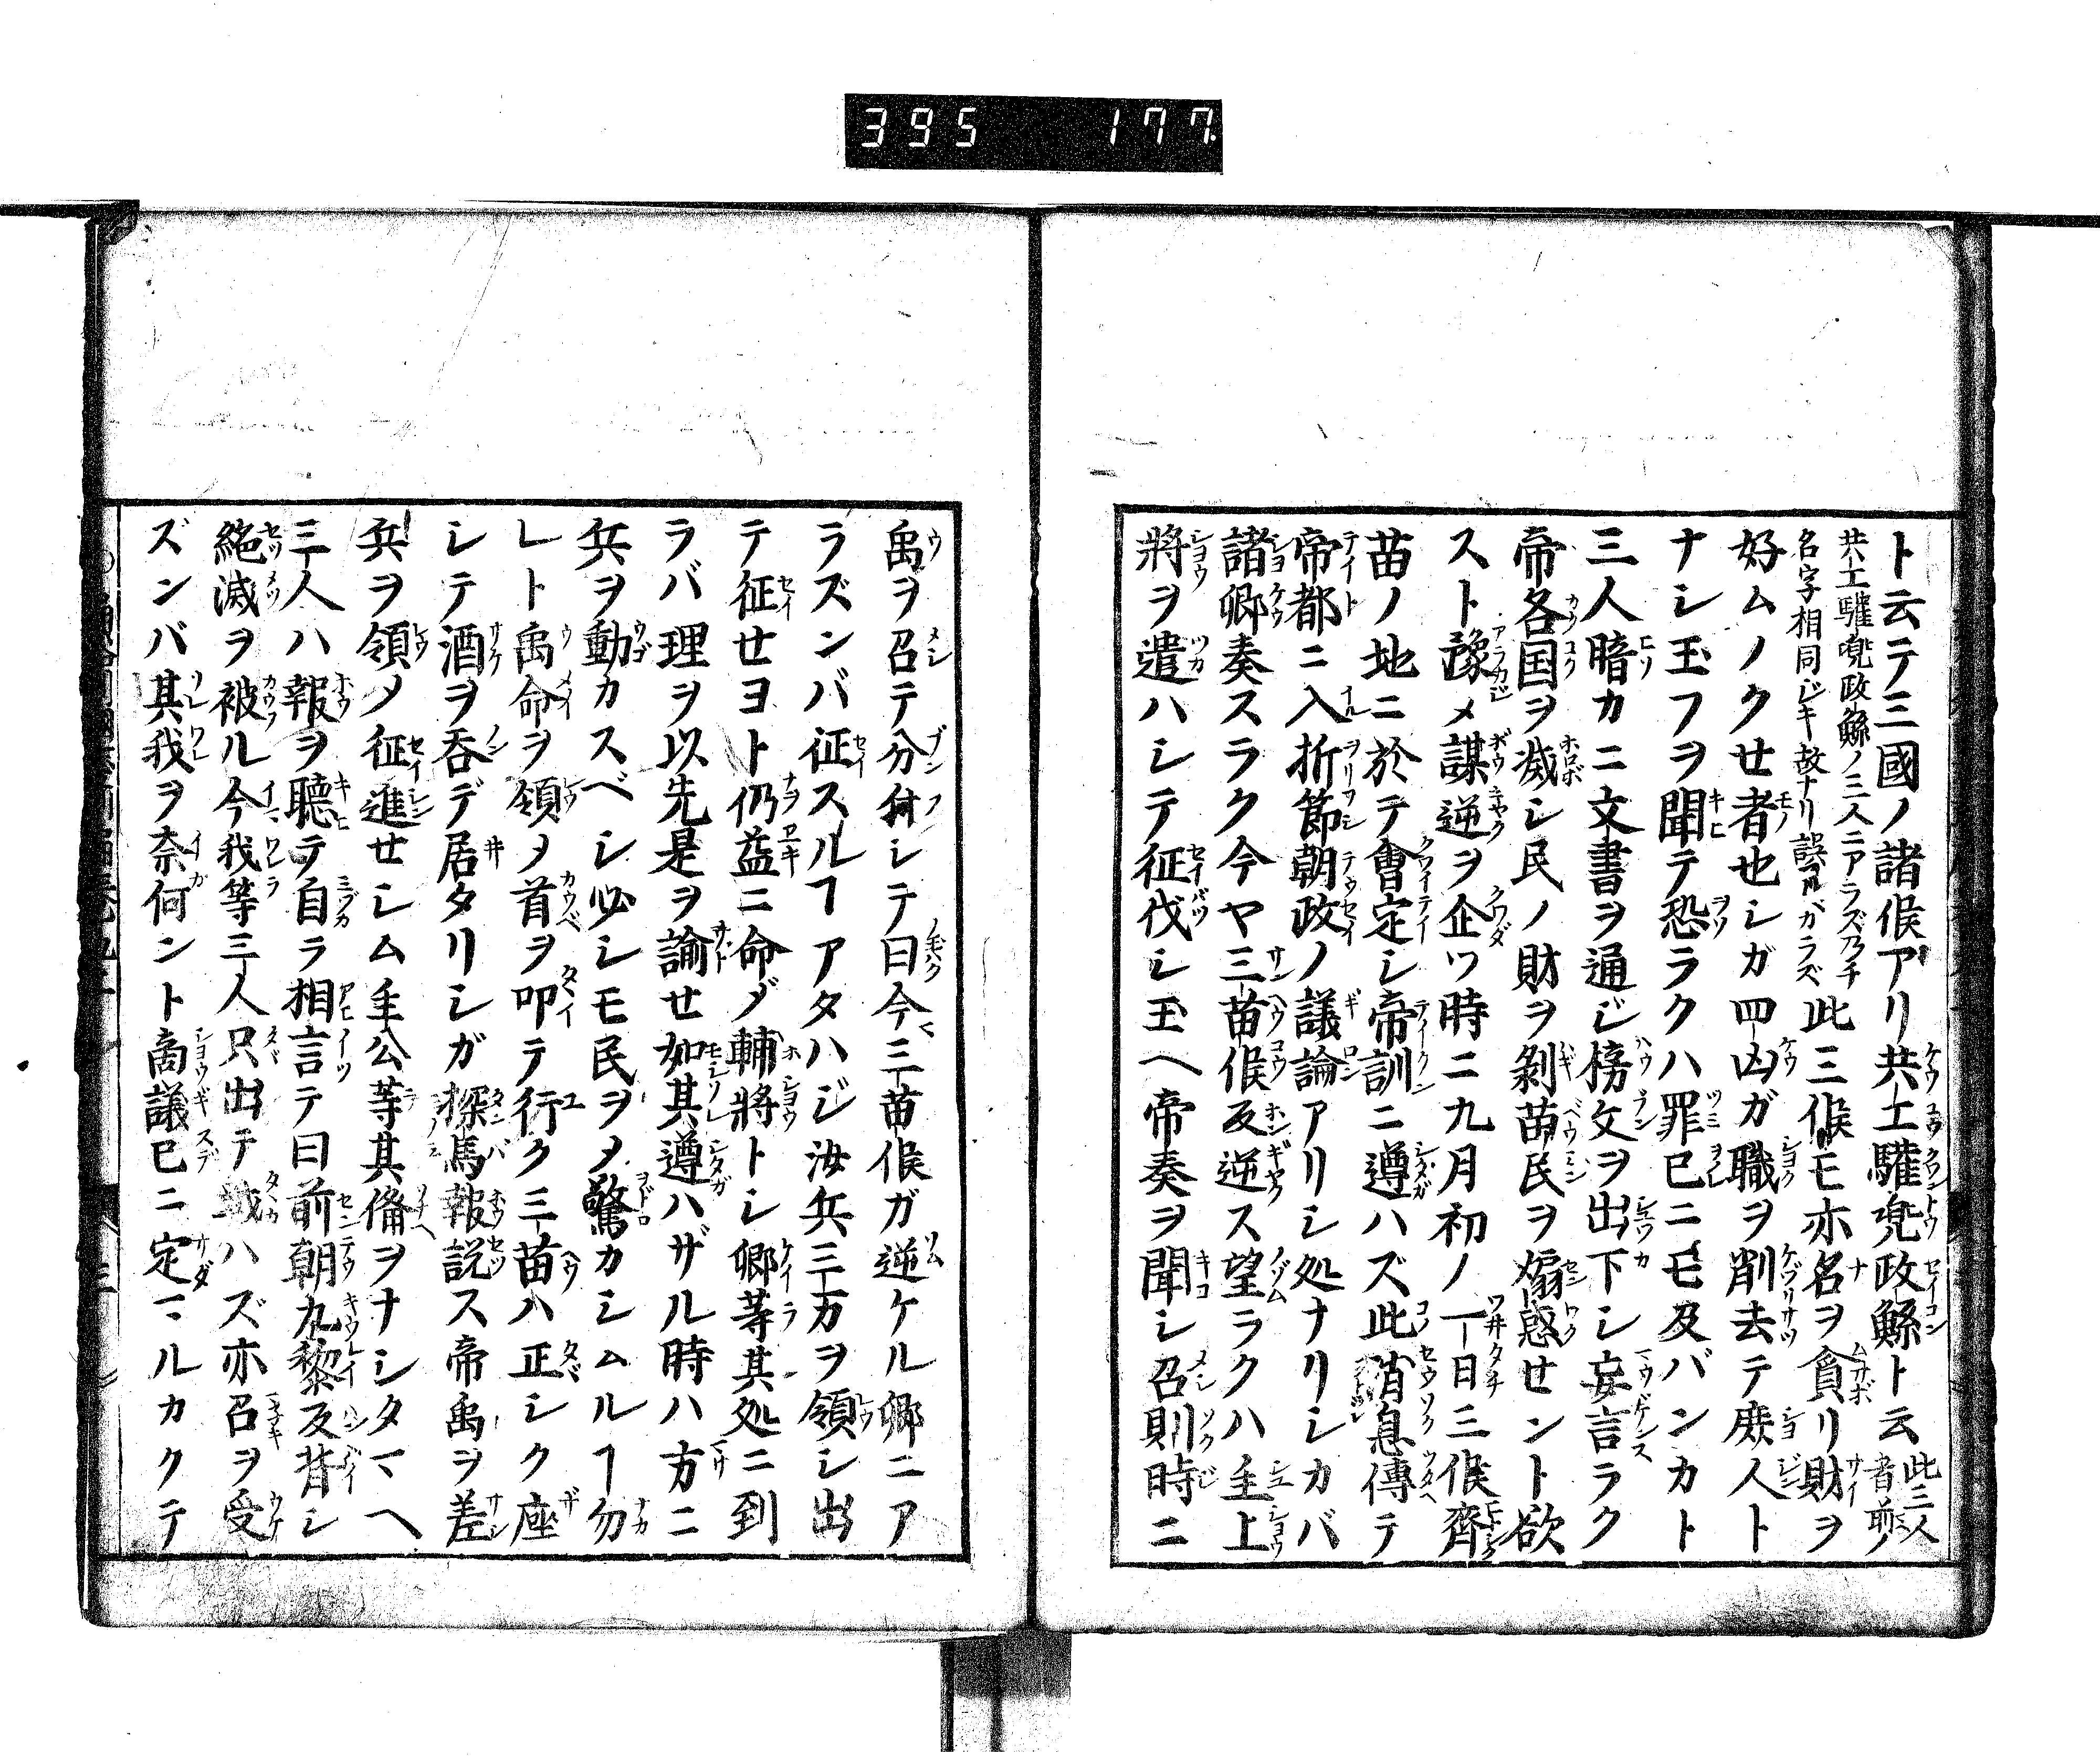 395 177
ト云テ三國ノ諸侯アリ共工驩兜政鯀ト云此三人者前ノ
共工驩兜政鯀ノ三人ニアラズ乃チ名字相同ジキ故ナリ誤マルベカラズ此三侯モ亦名ヲ貪リ財ヲ
好ムノクセ者也シガ四凶ガ職ヲ削去テ庶人ト
ナシ玉フヲ聞テ恐ラクハ罪已ニモ及バンカト
三人暗カニ文書ヲ通ジ榜文ヲ出下シ妄言ラク
帝各国ヲ滅シ民ノ財ヲ剝苗民ヲ煽惑せント欲
スト豫メ謀逆ヲ企ツ時ニ九月初ノ一日三侯齊
苗ノ地ニ於テ會定シ帝訓ニ遵ハズ此消息傳テ
帝都ニ入折節朝政ノ議論アリシ処ナリシカバ
諸卿奏スラク今ヤ三苗侯反逆ス望ラクハ主上
將ヲ遣ハシテ征伐シ玉ヘ帝奏ヲ聞シ召則時ニ
禹ヲ召テ分付シテ曰今三苗侯ガ逆ケル卿ニア
ラズンバ征スルヿアタハジ汝兵三万ヲ領シ出
テ征せヨト仍益ニ命ジ輔將トシ卿等其処ニ到
ラバ理ヲ以先是ヲ諭せ如其遵ハザル時ハ方ニ
兵ヲ動カスベシ必シモ民ヲ〆驚カシムルヿ勿
レト禹命ヲ領〆首ヲ叩テ行ク三苗ハ正シク座
シテ酒ヲ呑デ居タリシガ探馬報説ス帝禹ヲ差
兵ヲ領〆征進せシム主公等其備ヲナシタマヘ
三人ハ報ヲ聴テ自ラ相言テ曰前朝九黎反背シ
絶滅ヲ被ル今我等三人只出テ戦ハズ亦召ヲ受
ズンバ其我ヲ奈何ント商議已ニ定マルカクテ